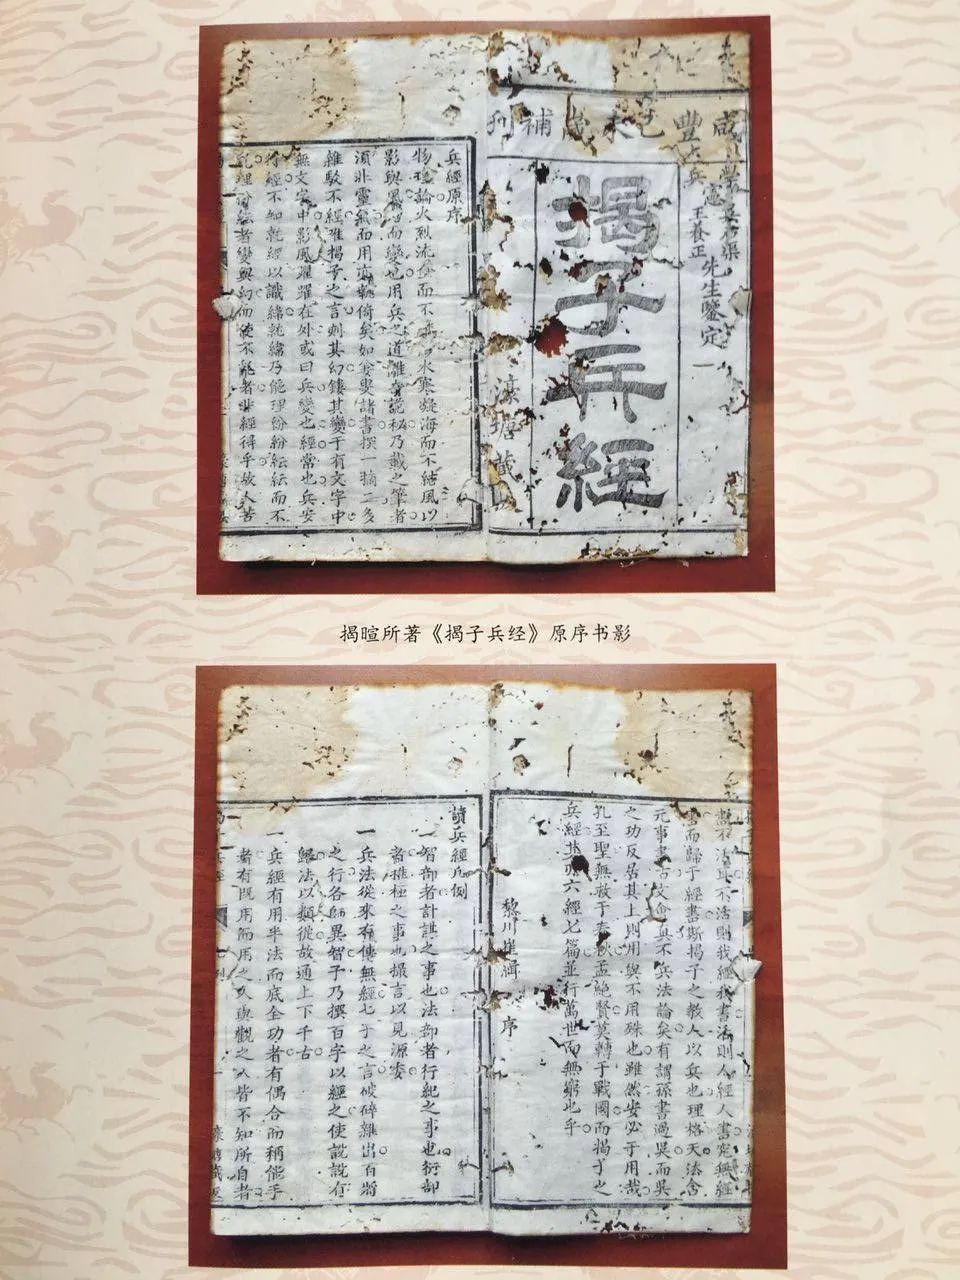 咸豐己未歲補刊
兵憲
王養正先生鑒定
揭子兵經
濠塘藏
兵經原序
物理論火烈流金而不水寒凝海而不結風以
影與而變也用兵之道離奇詭秘乃載之筆者
須非靈無而用矣如諸書撰一摘二多
雜駁不經惟揭子之言刺其幻鏤其變于有文字中
無文字中影風躍躍在外或曰兵變也經常也兵安
得經不知就經以識緯就緯乃能理紛紛紜紜而不
亂理者變與幻而使不能者非經得乎故人苦
揭暄所著《揭子兵经》原序书影
活耳不活則我經我書活則人經人書究無經
書而歸于經書斯揭子之教人以兵也理格天法含
元事書古文命與不兵法論矣有謂孫書過吳而吳
之功反居其上則用與不用殊也雖然安必于用哉
孔至聖無救于春秋孟絕賢莫轉于戰國而揭子之
兵經其與六經七篇並行萬世而無窮也乎
黎川 序
讀兵經凡例
一智部者計謀之事也法部者行紀之事也衍部
者推極之事也撮言以見源委
一兵法從來有傳無經七子之言破碎雜出百將
之行各師異智子乃撰百字以經之使說說有
歸法以類從故通上下千古
一兵經有用半法而底全功者有偶合而稱能手
者有既用而用之人與觀之人皆不知所自者